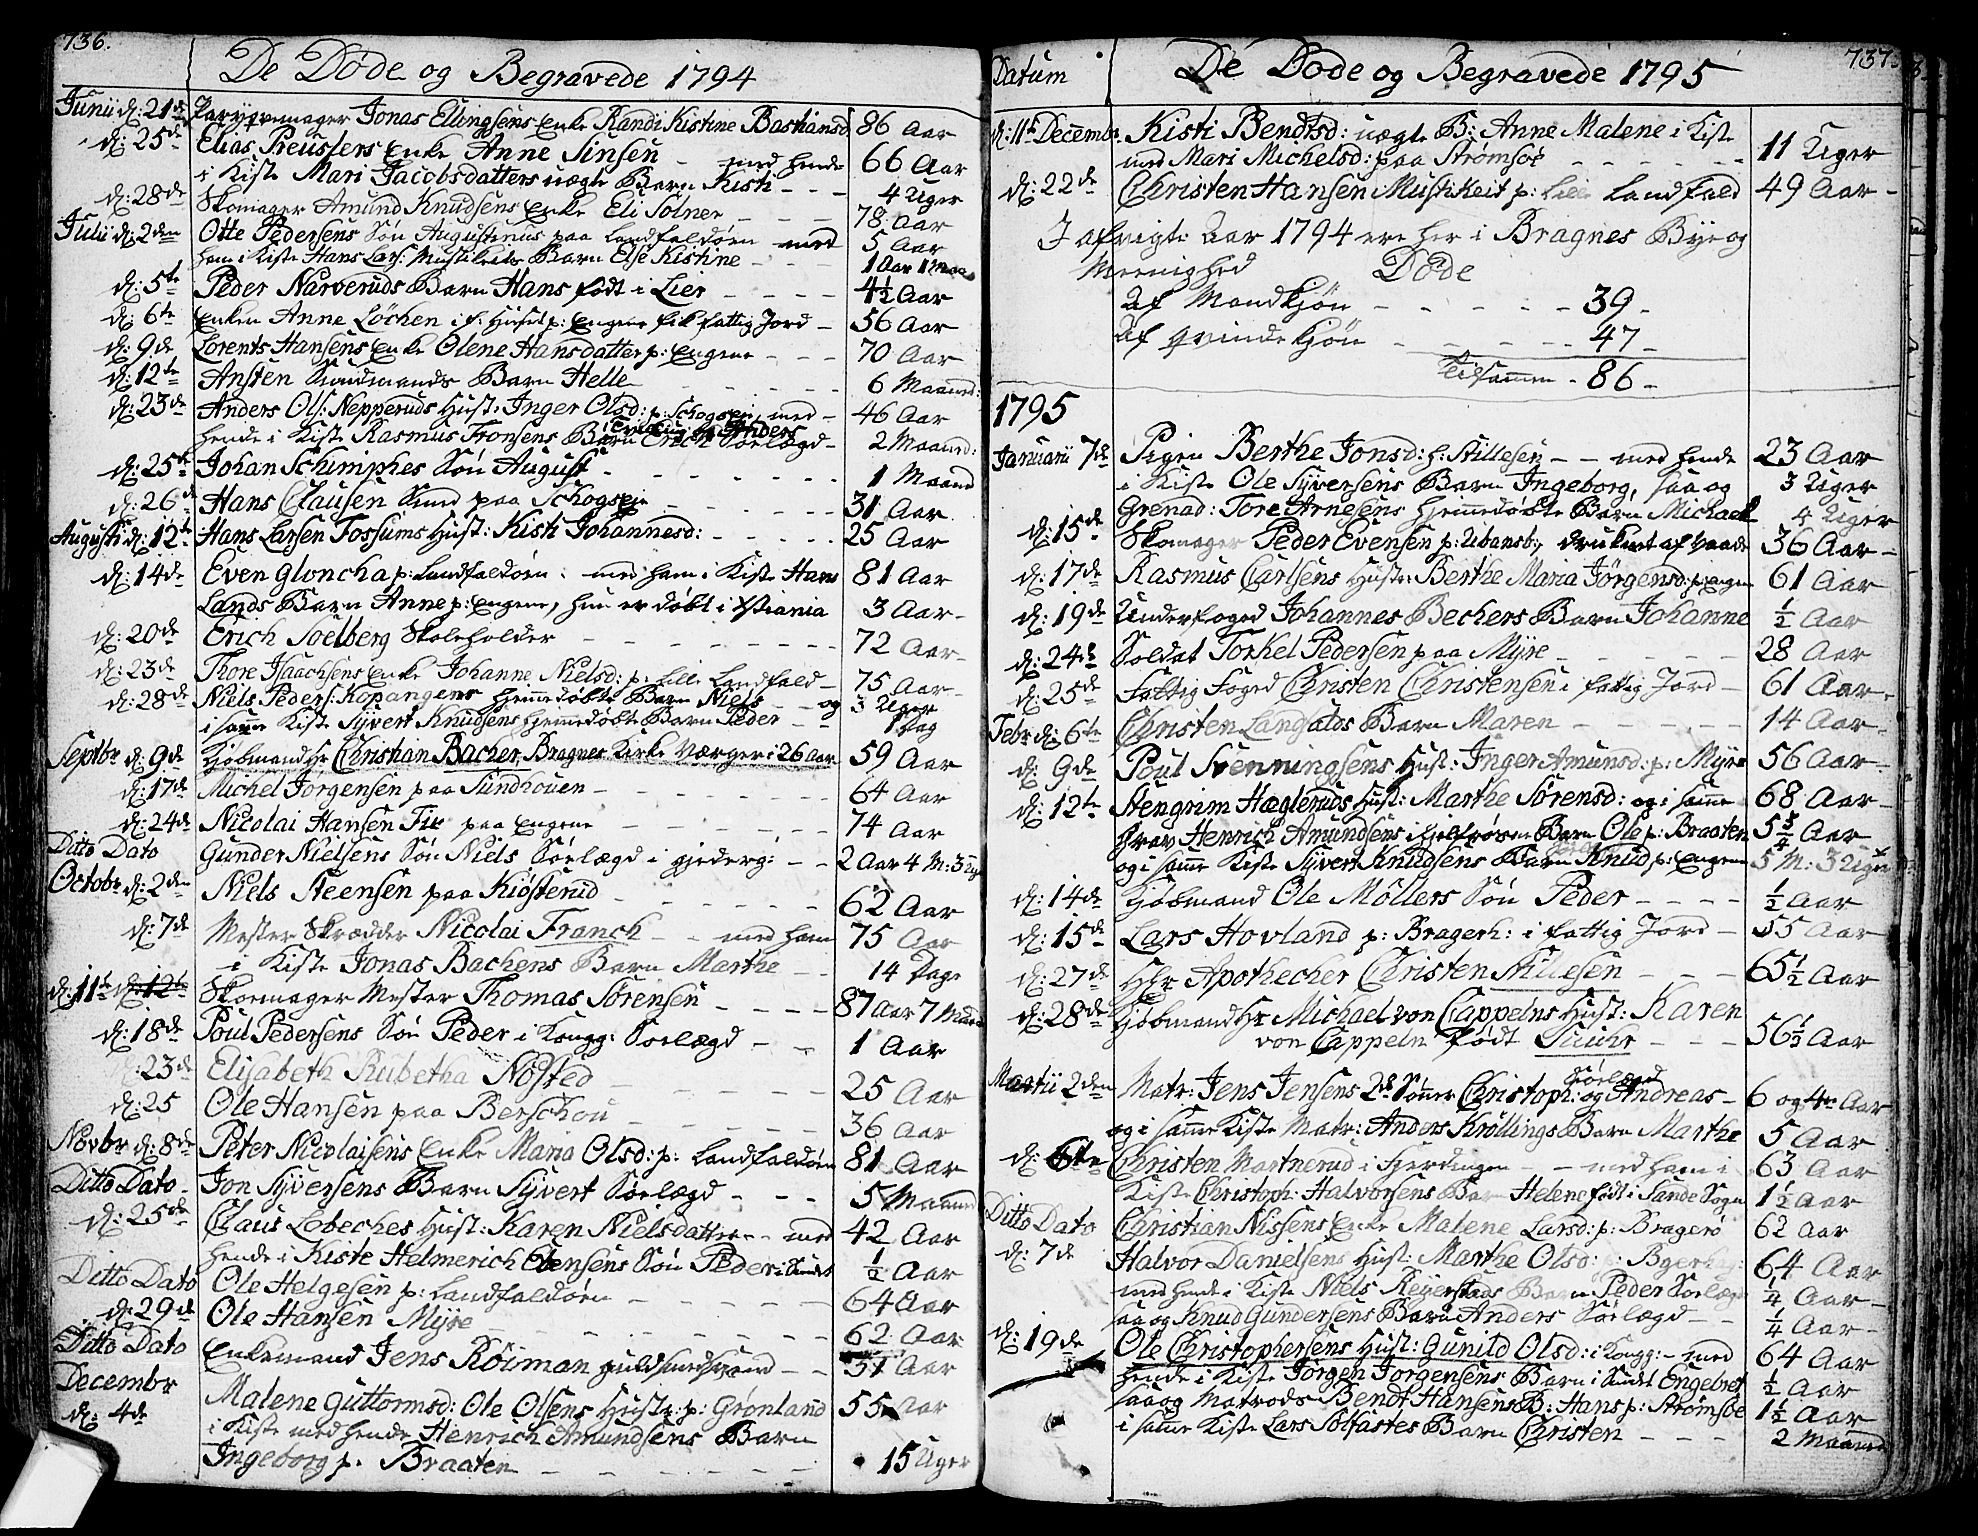 736.
De Döde og Begravede 1794
Junii d: 21de Parykemager Jonas Ellingsens Enke Randi Kistine Bastiansd 86 Aar
d: 25de Elias Preuslers Enke Anne Jinsen - med hende 66 Aar
i Kiste Mari Jacobsdatters uægte Barn Kisti - - - 4 Uger
d: 28de Skomager Amund Knudsens Enke Eli Solner - - - 78 Aar
Julii d: 2den Otte Pedersens Sön Augustinus paa Landfaldöen med 5 Aar
ham i Kiste Hans Lars: Muskeits Barn Else Kistine - - - 1 Aar 1 Maa
d: 5te Peder Narveruds Barn Hans födt i Lier - - - - 4½ Aar
d: 6te Enken Anne Löchen i f: Huset p: Engene fik fattig Jord - 56 Aar
d: 9de Lorents Hansens Enke Olene Hansdatter p: Engene - - - 70 Aar
d: 12te Ansten Kundmands Barn Helle - - - - 6 Maaned:
d: 23de Anders Ols: Nepperuds Hust: Inger Olsd: p: Schogsei, med - 46 Aar
hende i Kiste Rasmus Fronsens Barn Erich Sörlægd - 2 Maaned:
d: 25te Johan Schimphes Sön August - - - - 1 Maaned
d: 26de Hans Clausen Smed paa Schogsei - - - - 31 Aar
Augusti d: 12te Hans Larsen Fossums Hust: Kisti Johannesd: - - - - 25 Aar
d: 14de Even Gloncha p: Landfaldöen. med ham i Kiste Hans 81 Aar
Lands Barn Anne p: Engene, hun er döbt i Xstiania 3 Aar -
d: 20de Erich Soelberg Skoleholder - - - - 72 Aar -
d: 23de Thore Isaachsens Enke Johanne Nielsd: p: Lille Landfald - 75 Aar -
d: 28de Niels Peders: Kopangens hjemmedöbte Barn Niels - - og 3 Uger
i samme Kiste Syvert Knudsens hjemmedöbte Barn Peder - 1 Dag
Septbr d: 9de Kjöbmand Hr Christian Bacher, Bragnes Kirke Værger i 26 Aar 59 Aar
d: 17de Michel Jorgensen paa Sundhouen - - - - 64 Aar
d: 24de Nicolai Hansen Fix paa Engene - - - - 74 Aar
Ditto Dato Gunder Nielsens Sön Niels Sörlægd i gjederg: - - 2 Aar 4 M: 3 Ug
Octobr d: 2den Niels Steensen paa Kiöstenid - - - - 62 Aar
d: 7de Mester Skrædder Nicolai Franck - - med ham 75 Aar
i Kiste Jonas Bachens Barn Marthe - - 14 Dage
d: 11te d: 12te Skoemager Mester Thomas Sörensen - - - - 87 Aar 7 Maan
d: 18de Poul Pedersens Sön Peder i Kongg: Sörlægd - - 1 Aar
23de Elisabeth Rubetha Nösted - - - - 25 Aar
d: 25 Ole Hansen paa Berschou - - - - 36 Aar
Novbr d: 8de Peter Nicolaisens Enke Maria Olsd: p: Landfaldöen 81 Aar
Ditto Dato Jon Syversens Barn Syvert Sörlægd - - - 5 Maaned
d: 25de Claus Lobeches Hust: Karen Nielsdatter - - med 42 Aar
hende i Kiste Helmerich Olensens Sön Peder i Sundet ½ Aar
Ditto Dato Ole Helgesen p: Landfaldöen - - - - 64 Aar
d: 29de Ole Hansen Myre - - - - 62 Aar
Ditto Dato Enkemand Jens Röiman guldsmedsvend - - 51 Aar
Decembr
d: 4de Malene Guttormsd: Ole Olsens Hust: p: Grönland 55 Aar
i Kiste med hende Henrich Amundsens Barn
Ingeborg p. Braaten - - - - 15 Uger
737
Datum De Döde og Begravede 1795
d: 11te Decembr. Kisti Bendtsd: uægte B: Anne Malene i Kiste 11 Uger
med Mari Michelsd: paa Strömsöe - - - -
d: 22de Christen Hansen Mushkeit p: Lille Landfald 49 Aar -
I afvigte Aar 1794 ere her i Bragnes Bye og
Meenighed Döde
Af Mandkjön - - - - 39 -
Af Qvindekjön - - - - 47 -
Tilsammen - 86 -
1795
Januarii 7de Pigen Berthe Jonsd: h: Stillesen - - med hende 23 Aar
i Kiste Ole Syversens Barn Ingeborg, saa og 3 Uger
Grenad: Tore Arnesens hjemmedöbte Barn Michael 4 Uger
d: 15de Skomager Peder Evensen p: Ubansb:, druknet af Vaade 36 Aar -
d: 17de Rasmus Carlsens Hust: Berthe Maria Jörgensd: p: Engen 61 Aar
d: 19de Underfoged Johannes Bechers Barn Johanne ½ Aar
d: 24de Soldat Torkel Pedersen paa Myre - - - - 28 Aar
d: 25de Fattig Foged Christen Christensen i fattig Jord - 61 Aar -
Febr d: 6te Christen Langfalds Barn Maren - - - - 14 Aar -
d: 9de Poul Svenningsens Hust: Inger Amunsd: p: Myre 56 Aar -
d: 12te Stengrim Hægleruds Hust: Marthe Sörensd: og i samme 68 Aar -
Grav Henrich Amundsens Barn Ole p: Braaten 5¾ Aar -
og i samme Kiste Syvert Knudsens Barn Knud p: Engene 5 M: 3 Uger
d: 14de Kjöbmand Ole Möllers Sön Peder - - - - ½ Aar
d: 15de Lars Hovland p: Bragerh: i fattig Jord - 55 Aar
d: 27de Hr Apothecher Christen Stillesen - - - 65½ Aar
d: 28de Kjöbmand Hr Michael von Cappelns Hust: Karen
von Cappeln födt Smuhr - - - 56½ Aar
Martii 2den Matr: Jens Jensens 2de Sönner Christoph: og Andreas - Sörlægd 6 og 4 Aar
og i samme Kiste Matr: Anders Kröllings Barn Marthe 5 Aar
d: 6te Christen Martnerud i Fjerdingen - - med ham i 63 Aar
Kiste Christoph: Halvorsens Barn Helene födt i Sande Sogn 1½ Aar
Ditto Dato Christian Nissens Enke Malene Larsd: p: Bragerö 62 Aar
d: 7de Halvor Danielsens Hust: Marthe Olsd: 64 Aar
med hende i Kiste Niels Reyerstads Barn Peder Sörlægd ¼ Aar -
saa og Knud Gundersens Barn Anders Sörlægd - - ¼ Aar -
d: 19de Ole Christophersens Hust: Gunild Olsd: i Kongg: - med 64 Aar
hende i Kiste Jörgen Jorgensens Barn i Sundet Engebret ½ Aar
saa og Matrods Bendt Hansens B: Hans p: Strömsöe 1½ Aar
i samme Kiste Lars Solfastes Barn Christen - - - - 2 Maaned